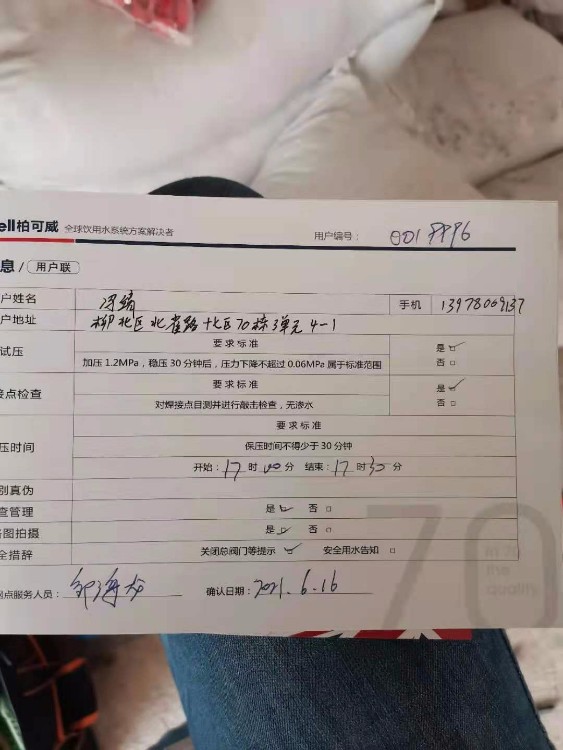 ell柏可威 全球饮用水系统方案解决者 用户编号：
息/ 用户联
户姓名 手机 13978069137
户地址 柳北区北雀路十区70栋3单元4-1
试压 要求标准 是
加压1.2MPa，稳压30分钟后，压力下降不超过0.06MPa属于标准范围 否
接点检查 要求标准 是
对焊接点目测并进行敲击检查，无渗水 否
压时间 要求标准
保压时间不得少于30分钟
开始：17时00分 结束：17时30分
别真伪
查管理 是 否
路图拍摄 是 否
全措辞 关闭总阀门等提示 安全用水告知
网点服务人员： 确认日期：2021.6.16
70
the
quality